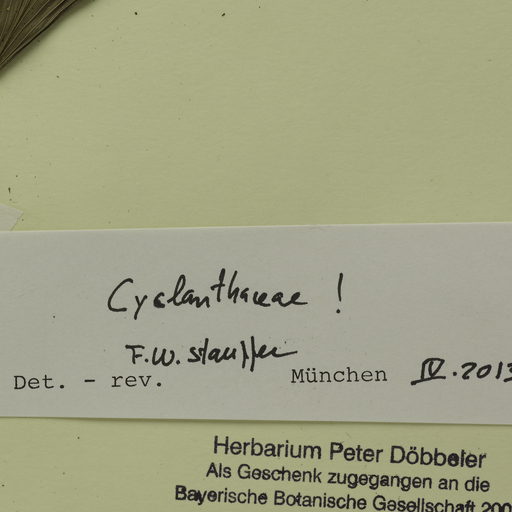 Cyclanthaceae !
F.W. Stauffer
Det. - rev. München IV. 2013
Herbarium Peter Döbbeler
Als Geschenk zugegangen an die
Bayerische Botanische Gesellschaft 200